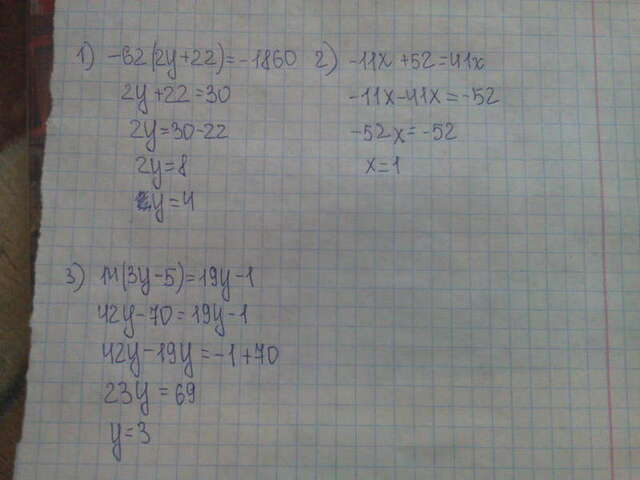 1) -62(2y+22)=-1860
2y+22=30
2y=30-22
2y=8
y=4
2) -11x+52=41x
-11x-41x=-52
-52x=-52
x=1
3) 14(3y-5)=19y-1
42y-70=19y-1
42y-19y=-1+70
23y=69
y=3